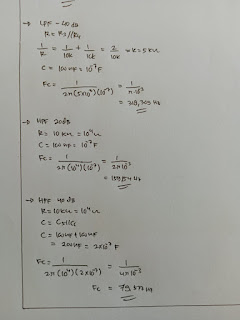 → LPF -40 dB
R = R3//R4
1/R = 1/10k + 1/10k = 2/10k → R = 5 kΩ
C = 100 nF = 10⁻⁷ F
Fc = 1/2π(5x10³)(10⁻⁷) = 1/π.10⁻³
= 318,309 Hz
→ HPF 20dB
R = 10 KΩ = 10⁴ Ω
C = 100 nF = 10⁻⁷ F
Fc = 1/2π(10⁴)(10⁻⁷) = 1/2π10⁻³
= 159,154 Hz
→ HPF 40 dB
R = 10 KΩ = 10⁴ Ω
C = C3//C4
C = 100 nF + 100 nF
= 200 nF = 2x10⁻⁷ F
Fc = 1/2π(10⁴)(2x10⁻⁷) = 1/4π10⁻³
Fc = 79,577 Hz